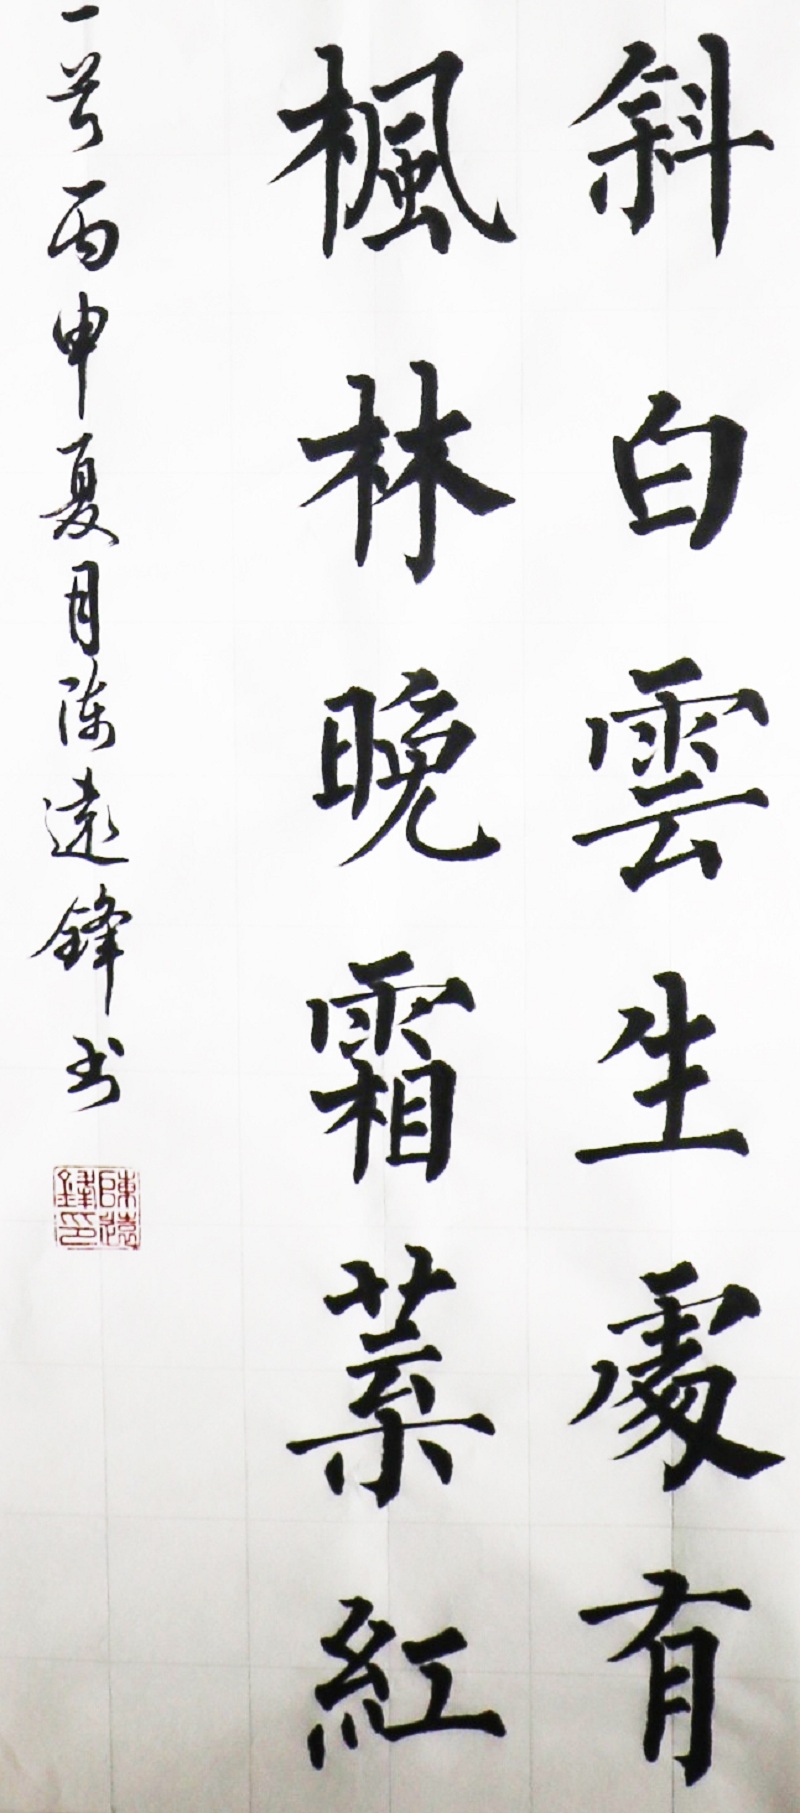 斜白雲生處有
楓林晚霜葉紅
一首丙申夏月陳遠鋒書
陳遠鋒印